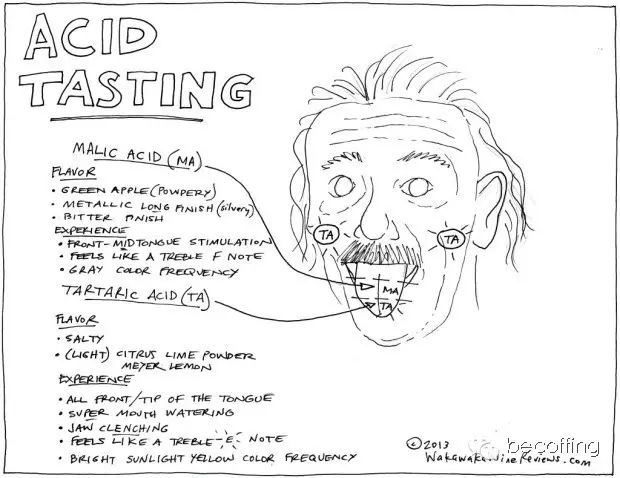 ACID
TASTING
MALIC ACID (MA)
FLAVOR
• GREEN APPLE (POWDERY)
• METALLIC LONG FINISH (silvery)
• BITTER FINISH
EXPERIENCE
• FRONT-MIDTONGUE STIMULATION
• FEELS LIKE A TREBLE F NOTE
• GRAY COLOR FREQUENCY
TARTARIC ACID (TA)
FLAVOR
• SALTY
• (LIGHT) CITRUS LIME POWDER
MEYER LEMON
EXPERIENCE
• ALL FRONT/TIP OF THE TONGUE
• SUPER MOUTH WATERING
• JAW CLENCHING
• FEELS LIKE A TREBLE E NOTE
• BRIGHT SUNLIGHT YELLOW COLOR FREQUENCY
TA
TA
MA
TA
©2013
WakawakaWineReviews.com
becoffing